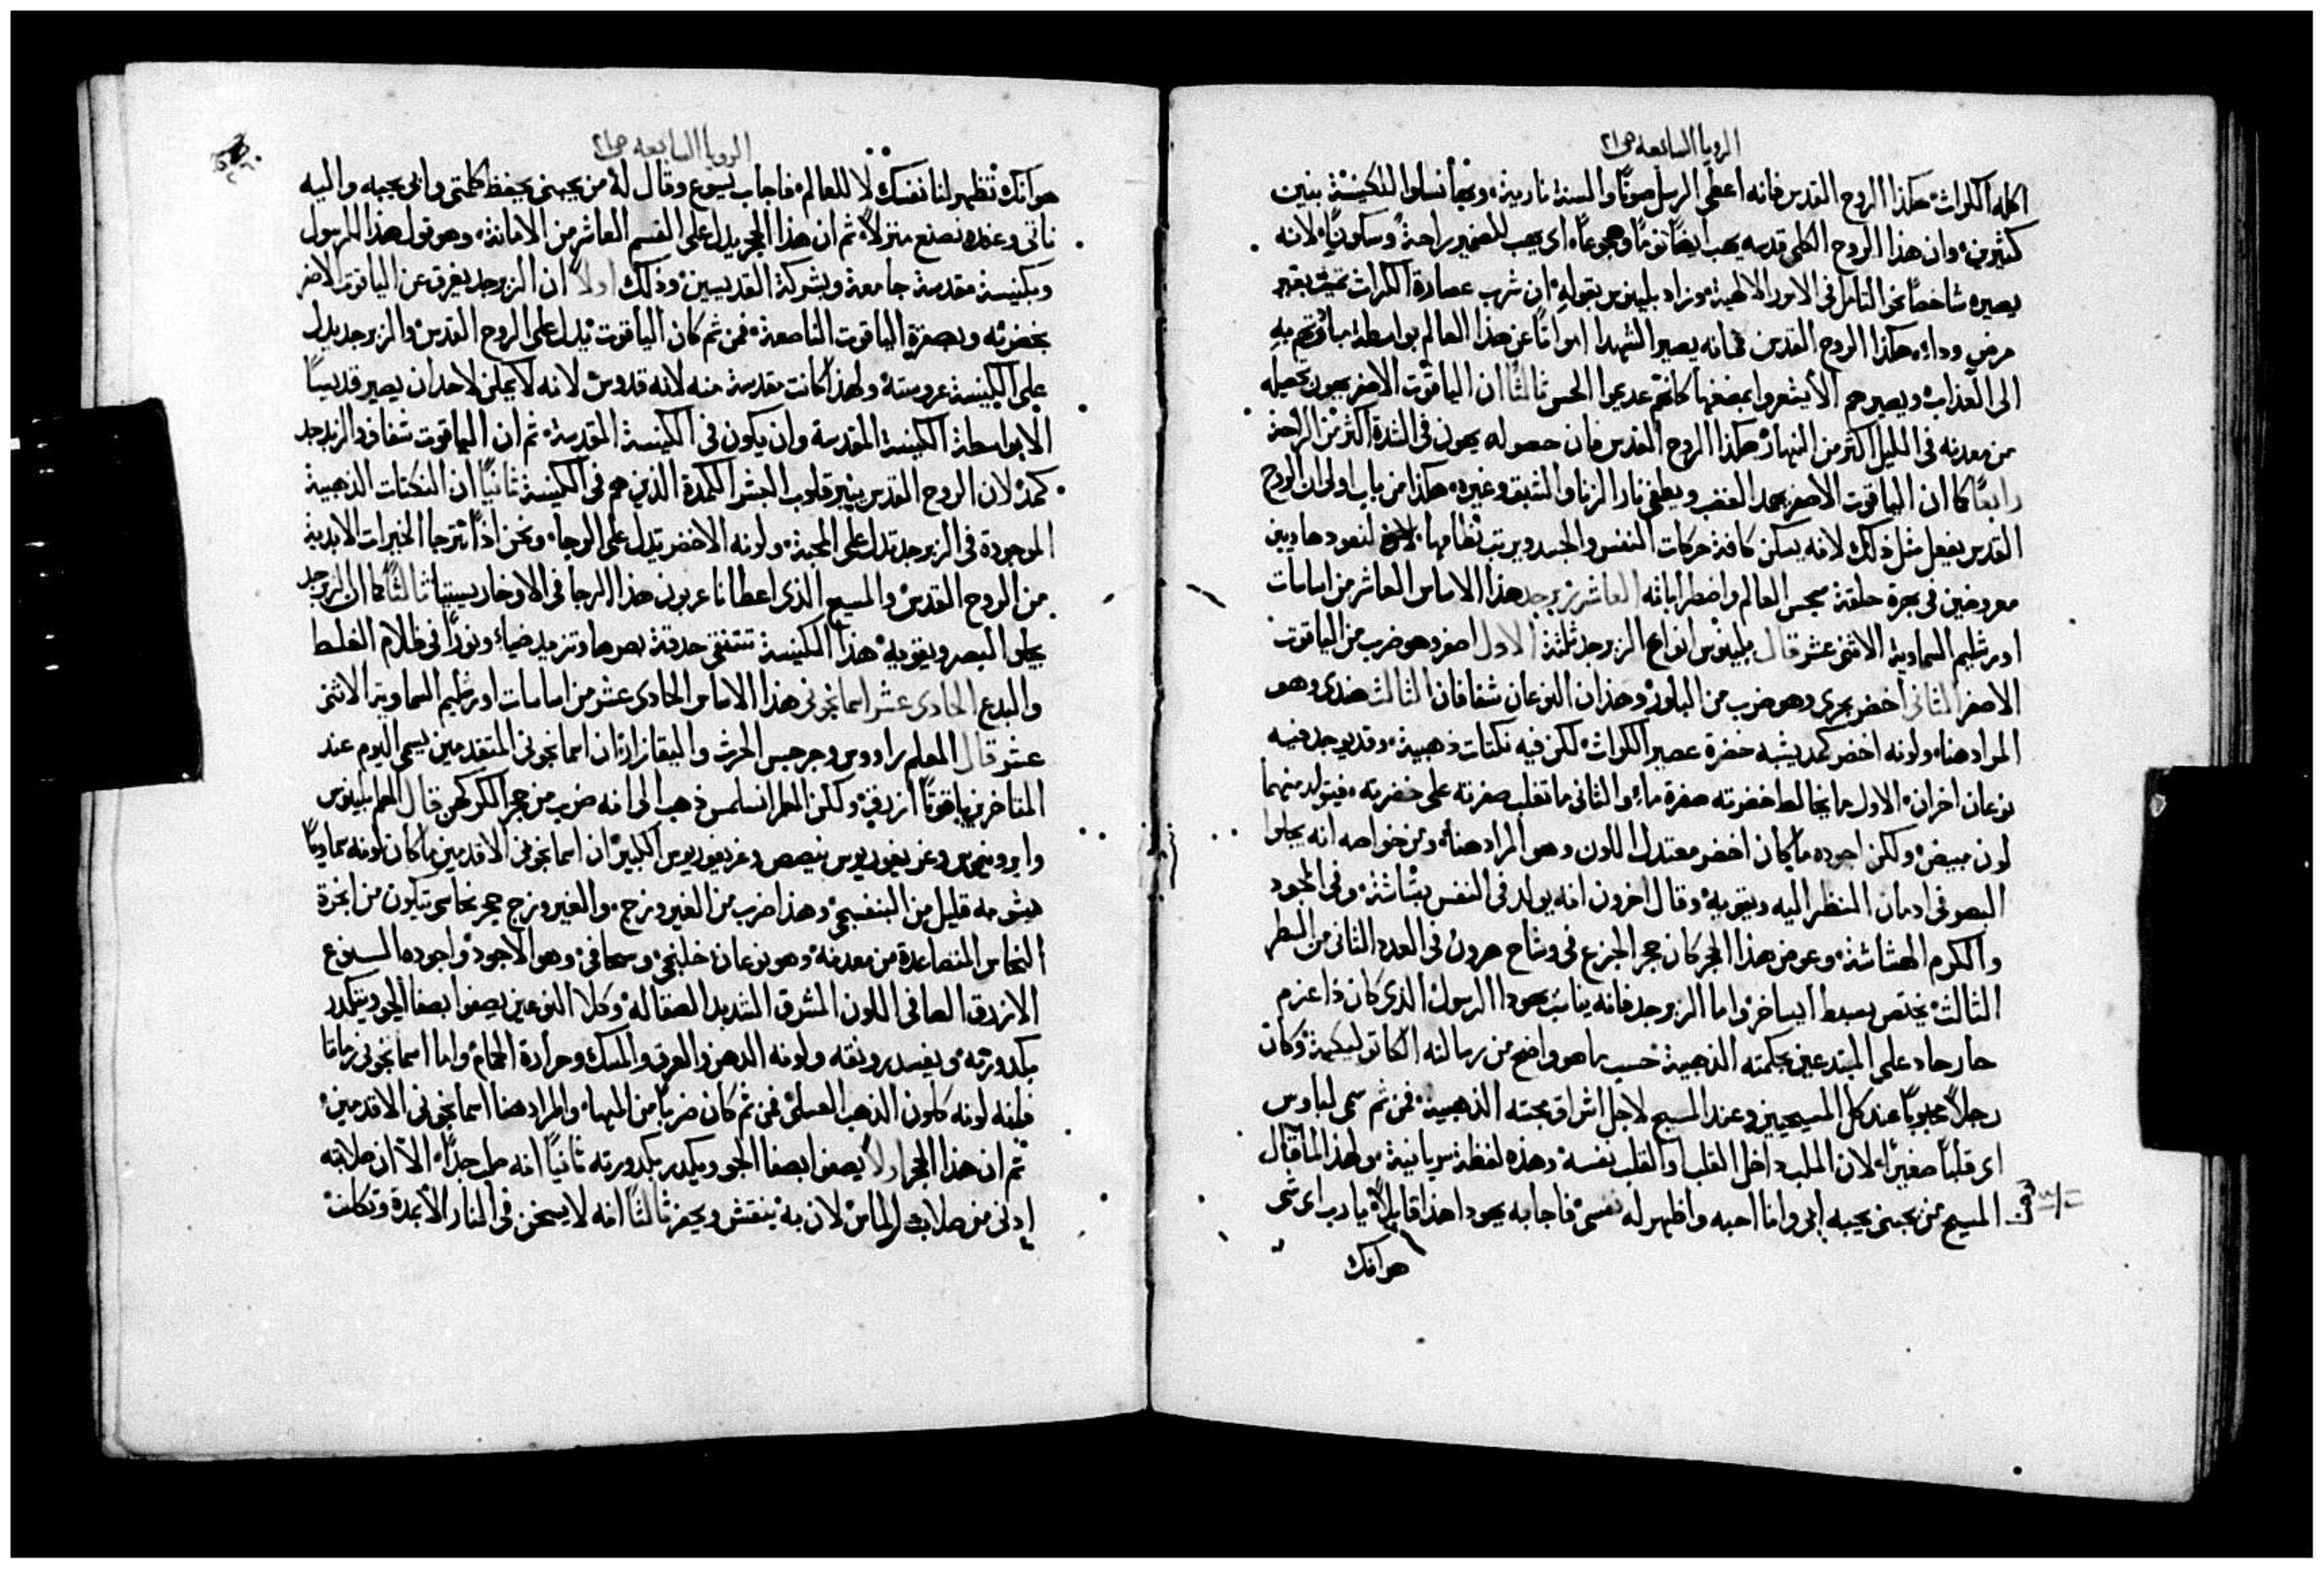 الرويا السابعه ص٢١
اكله الكراث هكذا الروح القدس فانه اعطى الرسل صوتًا والسنة نارية وبها نسلوا للكنيسة بنين
كثيرين وان هذا الروح الكلي قدسه يهب ايضًا نومًا وهجوعًا اى يهب للضمير راحةً وسكونًا لانه
يصيره شاخصًا نحو التامل في الامور الالهية وزاد بلينوس بقوله ان شرب عصارة الكراث تميت بغير
مرض وداء هكذا الروح القدس فانه يصير الشهدا امواتًا عن هذا العالم بواسطة مباوتهم به
الى العذاب ويصيرهم الا يشعروا بمضضها كانهم عديموا الحس ثالثًا ان الياقوت الاصفر يهون تحصيله
من معدنه في الليل اكثر من النهار هكذا الروح القدس فان حصوله يهون في الشدة اكثر من الراحة
رابعًا كما ان الياقوت الاصفر يخمد الغضب ويطفي نار الزنا والشبق وغيره هكذا من باب اولى ان الروح
القدس يفعل مثل ذلك لانه يسكن كافة حركات النفس والجسد ويرتب نظامها لنعود هاديين
معروضين في بحرة حلقة سجس العالم واضطراباته العاشر زبرجد هذا الاساس العاشر من اساسات
اورشليم السماوية الاثنى عشر قال بلينوس انواع الزبرجد ثلثة الاول اصفر وهو ضرب من الياقوت
الاصفر الثاني اخضر بحري وهو ضرب من البلور وهذان النوعان شفافان الثالث هندي وهو
المراد هنا ولونه اخضر كمد يشبه خضرة عصير الكراث لكن فيه نكتات ذهبية وقد يوجد فيه
نوعان اخران الاول ما يخالط خضرته صفرة ماء والثاني ما تغلب صفرته على خضرته فيتولد منهما
لون مبيض ولكن اجوده ما كان اخضر معتدل اللون وهو المراد هنا ومن خواصه انه يجلوا
البصر في ادمان النظر اليه ويقويه وقال اخرون انه يولد في النفس بشاشة وفي الجود
والكرم الهشاشة وعوض هذا الحجر كان حجر الجزع في وشاح هرون في العدد الثاني من السطر
الثالث يختص بسبط ايساخر واما الزبرجد فانه يناسب يهودا الرسول الذي كان ذا عزم
حار حاد على المبتدعين بحكمته الذهبية حسب ما هو واضح من رسالته الكاتوليكية وكان
رجلاً محبوبًا عند كل المسيحيين وعند المسيح لاجل اشراق محبته الذهبية فمن ثم سمي لباوس
اى قلبًا صغيرًا لان الملب داخل القلب او القلب نفسه وهذه لفظة سريانية ولهذا لما قال
المسيح من يحبني يحبه ابي وانا احبه واظهر له نفسي فاجابه يهودا هذا قايلاً يا رب اى شي
هو انك
الرويا السابعه ص٢١
هو انك تظهر لنا نفسك لا للعالم فاجاب يسوع وقال له من يحبني يحفظ كلمتي وابي يحبه واليه
ناتي وعنده نصنع منزلاً ثم ان هذا الحجر يدل على القسم العاشر من الامانة وهو قول هذا الرسول
وبكنيسة مقدسة جامعة وبشركة القديسين وذلك اولاً ان الزبرجد يفرق عن الياقوت الاصفر
بخضرته وبصفرة الياقوت الناصعة فمن ثم كان الياقوت يدل على الروح القدس والزبرجد يدل
على الكنيسة عروسته ولهذا كانت مقدسة منه لانه قدوس لانه لا يمكن لاحد ان يصير قديسًا
الا بواسطة الكنيسة المقدسة وان يكون في الكنيسة المقدسة ثم ان الياقوت شفاف والزبرجد
كمد لان الروح القدس ينير قلوب البشر الكمدة الذين هم في الكنيسة ثانيًا ان النكتات الذهبية
الموجودة في الزبرجد تدل على المحبة ولونه الاخضر يدل على الرجا ونحن اذًا نترجا الخيرات الابدية
من الروح القدس والمسيح الذي اعطانا عربون هذا الرجا في الاوخارستيا ثالثًا كما ان الزبرجد
يجلو البصر ويقويه هذا الكنيسة تنتقي حدقة بصرها وتزيد ضياء ونورًا في ظلام الغلط
والبدع الحادي عشر اسمانجوني هذا الاساس الحادي عشر من اساسات اورشليم السماوية الاثنى
عشر قال المعلم برادوس وجرجس الحرث والبقازار ان اسمانجوني المتقدمين يسمى اليوم عند
المتاخرين ياقوتًا ازرق ولكن العلم انسلمس ذهب الى انه ضرب من حجر الكركهن قال العلم بلينوس
وايرونيموس وغريغوريوس نيصص وغريغوريوس الكبير ان اسمانجوني الاقدمين ما كان لونه سماويًا
مشوبه قليل من البنفسجي وهذا ضرب من الفيروزج والفيروزج حجر نحاسي يتكون من ابخرة
النحاس المتصاعدة من معدنه وهو نوعان خليجي وسحافي وهو الاجود واجوده السبنوع
الازرق الصافي اللون المشرق الشديد الصقاله وكلا النوعين يصفوا بصفا الجو ويتكدر
بكدورته ويفسد رونقه ولونه الدهن والعرق والمسك وحرارة الحمام واما اسمانجوني زماننا
فلنه لونه كلون الذهب العسلي فمن ثم كان ضربًا من المها والمراد هنا اسمانجوني الاقدمين
ثم ان هذا الحجر اولاً يصفوا بصفا الجو ويكدر بكدورته ثانيًا انه صلب جدًا الا ان صلابته
ادنى من صلابة الماس لان به ينقش ويحفر ثالثًا انه لا يسخن في النار الا بمدة وتكلف